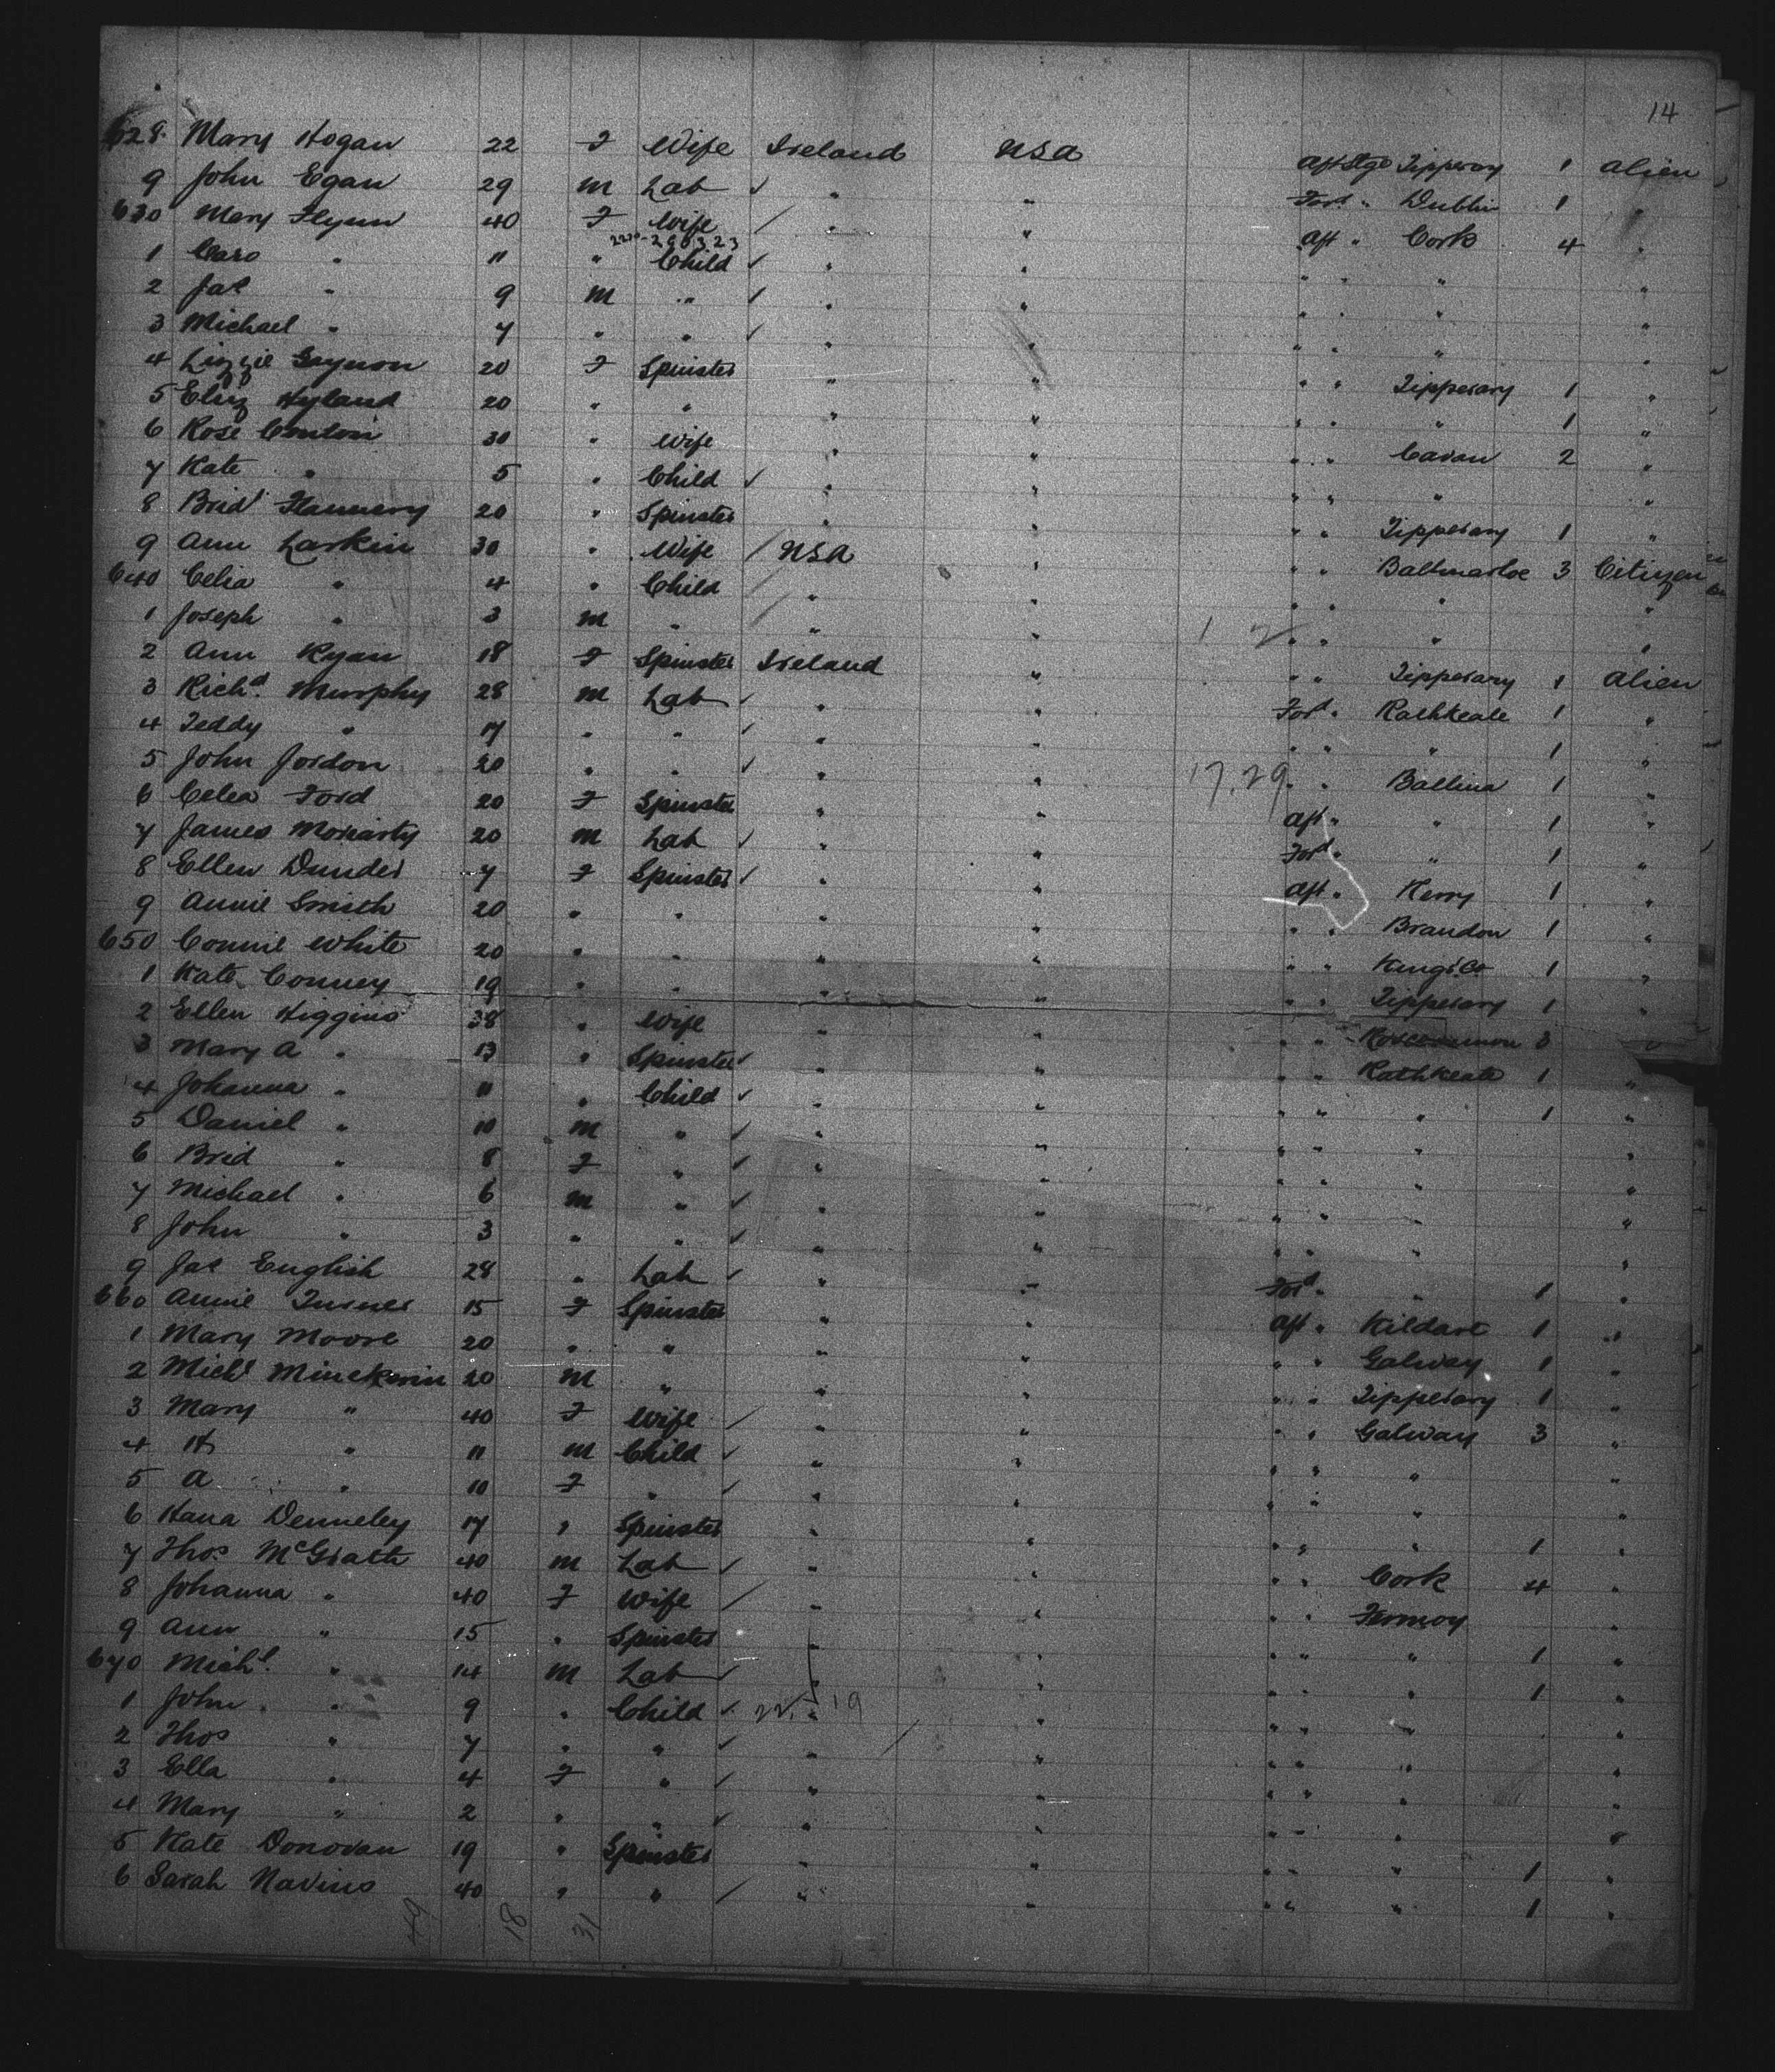 14
628 Mary Hogan 22 F Wife Ireland USA Aft Stge Tipperary 1 Alien
9 John Egan 29 M Lab ✓ " " Ford " Dublin 1 "
630 Mary Flynn 40 F Wife / " " Aft " Cork 4 "
1 Caro " 11 " Child ✓ " " " " " "
2 Jas " 9 M " ✓ " " " " " "
3 Michael " 7 " " ✓ " " " " " "
4 Lizzie Gaynon 20 F Spinster " " " " Tipperary 1 "
5 Eliz Hyland 20 " " " " " " " 1 "
6 Rose Conlon 30 " Wife " " " " Cavan 2 "
7 Kate " 5 " Child ✓ " " " " " "
8 Brid Flannery 20 " Spinster " " " " Tipperary 1 "
9 Ann Larkin 30 " Wife / USA " " " Ballinasloe 3 Citizen
640 Celia " 4 " Child / " " " " " "
1 Joseph " 3 M " " " " " " "
2 Ann Ryan 18 F Spinster Ireland " " " Tipperary 1 Alien
3 Richd Murphy 28 M Lab ✓ " " Ford " Rathkeale 1 "
4 Teddy " 17 " " ✓ " " " " " 1 "
5 John Jordon 20 " " ✓ " " 17.29 " " Ballina 1 "
6 Celea Ford 20 F Spinster " " Aft " " 1 "
7 James Moriarty 20 M Lab ✓ " " Ford " " 1 "
8 Ellen Dunder 7 F Spinster ✓ " " Aft " Kerry 1 "
9 Annie Smith 20 " " " " " " Brandon 1 "
650 Connie White 20 " " " " " " Kings Co 1 "
1 Kate Conney 19 " " " " " " Tipperary 1 "
2 Ellen Higgins 38 " Wife " " " " Roscommon 3
3 Mary A " 13 " Spinster ✓ " " " " Rathkeale 1 "
4 Johanna " 11 " Child ✓ " " " " " 1 "
5 Daniel " 10 M " ✓ " " " " " "
6 Brid " 8 F " ✓ " " " " " "
7 Michael " 6 M " ✓ " " " " " "
8 John " 3 " " ✓ " " " " " "
9 Jas English 28 " Lab ✓ " " Ford " " 1 "
660 Annie Turner 15 F Spinster " " Aft " Kildare 1 "
1 Mary Moore 20 " " " " " " Galway 1 "
2 Michl Minckerin 20 M " " " " " Tipperary 1 "
3 Mary " 40 F Wife / " " " " Galway 3 "
4 H " 11 M Child ✓ " " " " " "
5 A " 10 F " ✓ " " " " " "
6 Hana Denneley 17 " Spinster " " " " " 1 "
7 Thos McGrath 40 M Lab ✓ " " " " Cork 4 "
8 Johanna " 40 F Wife / " " " " Fermoy "
9 Ann " 15 " Spinster " " " " 1 "
670 Michl " 14 M Lab ✓ " " " " " 1 "
1 John " 9 " Child ✓ " " " " " "
2 Thos " 7 " " ✓ " " " " " "
3 Ella " 4 F " ✓ " " " " " "
4 Mary " 2 " " ✓ " " " " " "
5 Kate Donovan 19 " Spinster " " " " " 1 "
6 Sarah Navins 40 " " / " " " " " 1 "
49 18 31